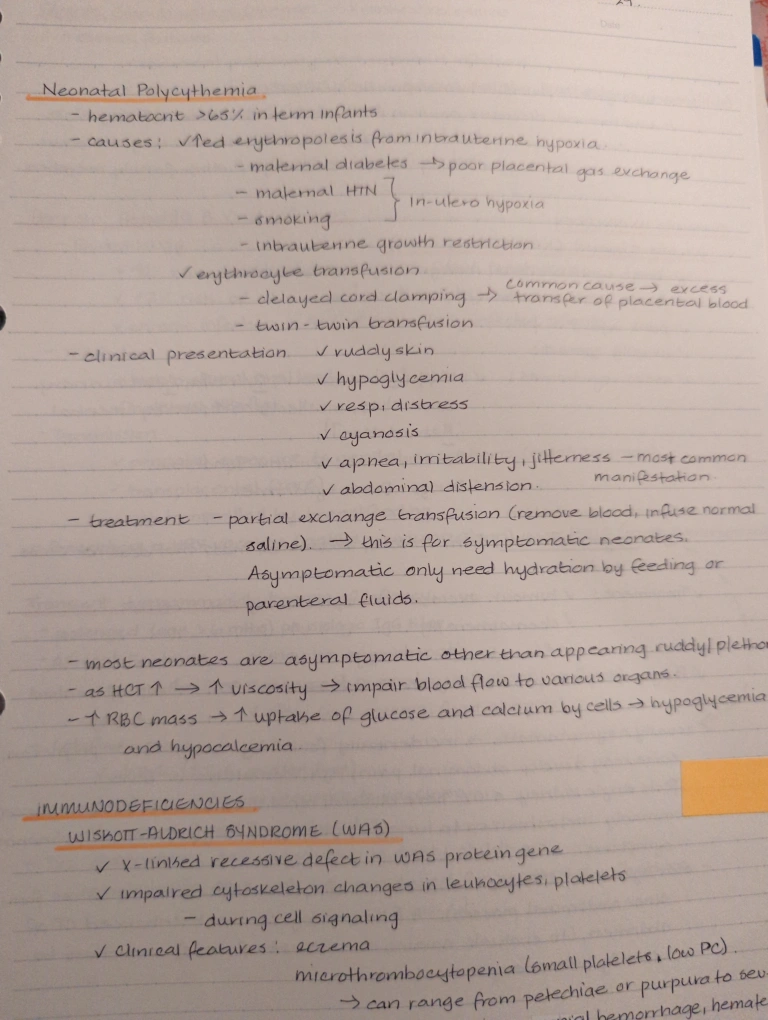 Date
Neonatal Polycythemia
- hematocrit >65% in term infants
- causes: ✓↑ed erythropoiesis from intrauterine hypoxia
- maternal diabetes → poor placental gas exchange
- maternal HTN
- smoking
} in-utero hypoxia
- intrauterine growth restriction
✓ erythrocyte transfusion
- delayed cord clamping → common cause → excess
transfer of placental blood
- twin-twin transfusion
- clinical presentation ✓ ruddy skin
✓ hypoglycemia
✓ resp. distress
✓ cyanosis
✓ apnea, irritability, jitterness - most common
manifestation
✓ abdominal distension.
- treatment - partial exchange transfusion (remove blood, infuse normal
saline). → this is for symptomatic neonates.
Asymptomatic only need hydration by feeding or
parenteral fluids.
- most neonates are asymptomatic other than appearing ruddy/pletho
- as HCT ↑ → ↑ viscosity → impair blood flow to various organs.
- ↑ RBC mass → ↑ uptake of glucose and calcium by cells → hypoglycemia
and hypocalcemia.
IMMUNODEFICIENCIES
WISKOTT-ALDRICH SYNDROME (WAS)
✓ X-linked recessive defect in WAS protein gene
✓ impaired cytoskeleton changes in leukocytes, platelets
- during cell signaling
✓ clinical features: eczema
microthrombocytopenia (small platelets, low PC).
→ can range from petechiae or purpura to sev
hemorrhage, hemate